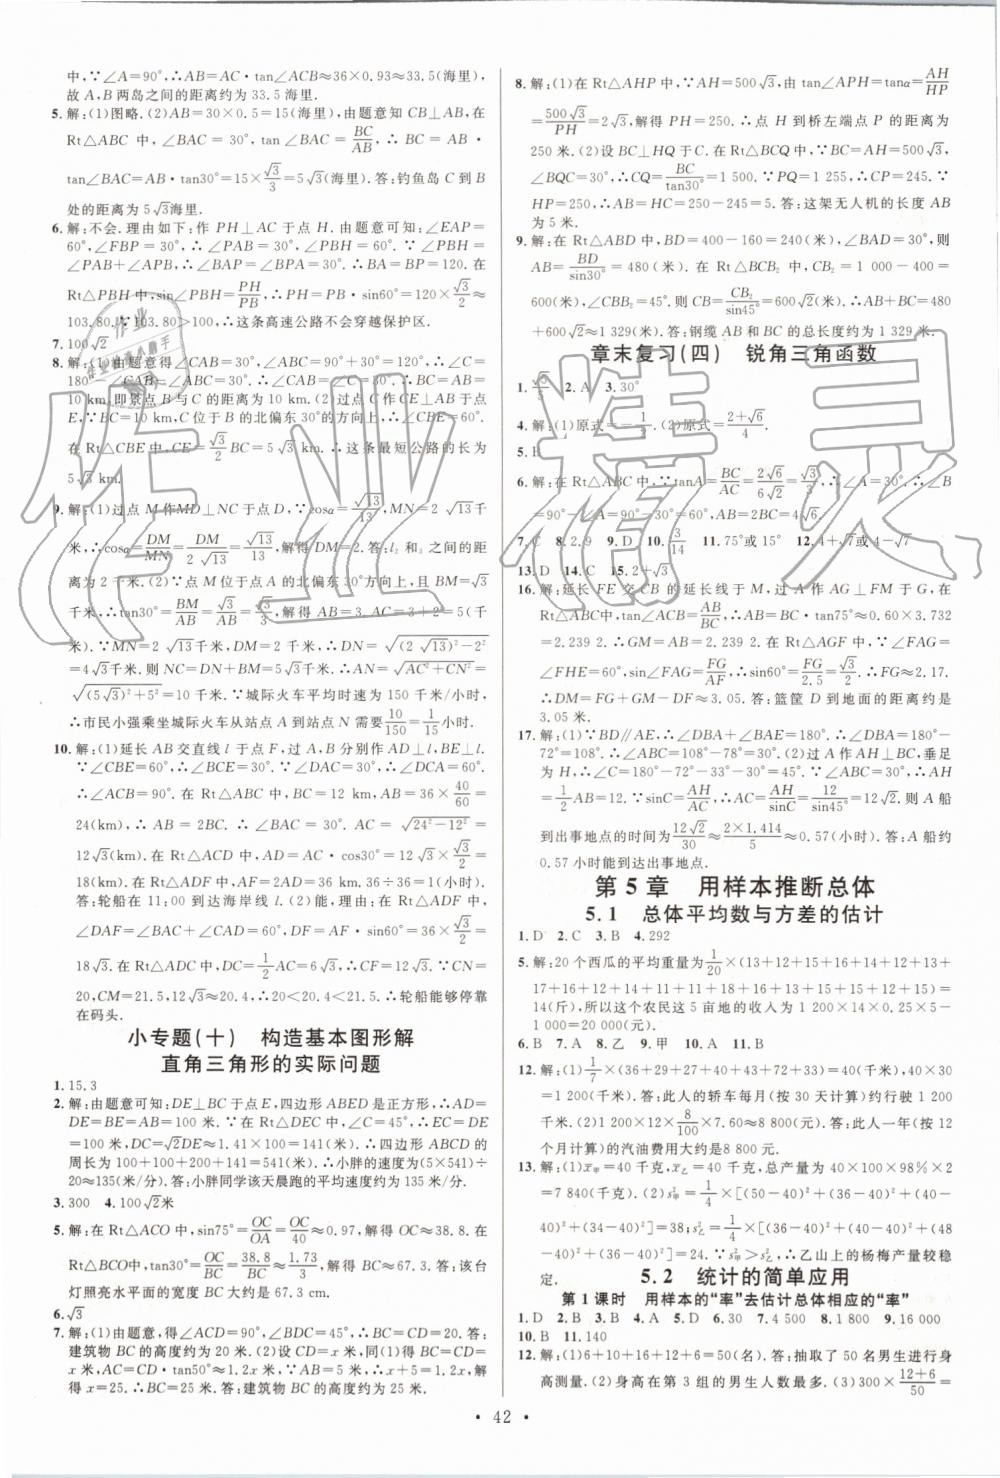 中,∵∠A=90°,∴AB=AC·tan∠ACB≈36×0.93≈33.5(海里).
故A,B两岛之间的距离约为33.5海里.
5.解:(1)图略.(2)AB=30×0.5=15(海里),由题意知CB⊥AB,在
Rt△ABC中,∠BAC=30°,tan∠BAC=BC/AB,∴BC=AB·
tan∠BAC=AB·tan30°=15×√3/3=5√3(海里).答:钓鱼岛C到B
处的距离为5√3海里.
6.解:不会.理由如下:作PH⊥AC于点H.由题意可知:∠EAP=
60°,∠FBP=30°,∴∠PAB=30°,∠PBH=60°.∵∠PBH=
∠PAB+∠APB,∴∠BAP=∠BPA=30°.∴BA=BP=120.在
Rt△PBH中,sin∠PBH=PH/PB,∴PH=PB·sin60°=120×√3/2≈
103.80.∵103.80>100,∴这条高速公路不会穿越保护区.
7.100√2
8.解:(1)由题意得∠CAB=30°,∠ABC=90°+30°=120°,∴∠C=
180°-∠CAB-∠ABC=30°.∴∠CAB=∠C=30°.∴BC=AB=
10 km,即景点B与C的距离为10 km.(2)过点C作CE⊥AB于点
E.∵BC=10 km,C位于B的北偏东30°的方向上,∴∠CBE=60°.
在Rt△CBE中,CE=√3/2 BC=5√3 km.∴这条最短公路的长为
5√3 km.
9.解:(1)过点M作MD⊥NC于点D,∵cosα=√13/13,MN=2√13千
米,∴cosα=DM/MN=DM/2√13=√13/13,解得DM=2.答:l₂和l₃之间的距
离为2千米.(2)∵点M位于点A的北偏东30°方向上,且BM=√3千
米,∴tan30°=BM/AB=√3/AB=√3/3,解得AB=3.∴AC=3+2=5(千
米).∵MN=2√13千米,DM=2千米,∴DN=√((2√13)²-2²)
=4√3千米.则NC=DN+BM=5√3千米.∴AN=√(AC²+CN²)=
√((5√3)²+5²)=10(千米).∵城际火车平均时速为150千米/小时,
∴市民小强乘坐城际火车从站点A到站点N需要10/150=1/15小时.
10.解:(1)延长AB交直线l于点F,过A,B分别作AD⊥l,BE⊥l.
∵∠CBE=60°,∴∠BCE=30°.∵∠DAC=30°,∴∠DCA=60°.
∴∠ACB=90°.在Rt△ABC中,BC=12 km,AB=36×40/60=
24(km),∴AB=2BC.∴∠BAC=30°,AC=√(24²-12²)=
12√3(km).在Rt△ACD中,AD=AC·cos30°=12√3×√3/2=
18(km).在Rt△ADF中,AF=2AD=36 km.36÷36=1(小时).
答:轮船在11:00到达海岸线l.(2)能,理由:在Rt△ADF中,
∠DAF=∠BAC+∠CAD=60°,AF=36 km,∴DF=√3/2 AF=
18√3.在Rt△ADC中,DC=1/2 AC=6√3,∴CF=12√3.∵CN=
20,CM=21.5,12√3≈20.4,∴20<20.4<21.5.∴轮船能够停靠
在码头.
小专题(十) 构造基本图形解
直角三角形的实际问题
1.15.3
2.解:由题意可知:DE⊥BC于点E,四边形ABED是正方形,∴AD=
DE=BE=AB=100米.在Rt△DEC中,∠C=45°,∴EC=DE=
100米,DC=√2DE≈1.41×100=141(米).∴四边形ABCD的
周长为100+100+200+141=541(米).∴小胖的速度为(5×541)÷
20≈135(米/分).答:小胖同学该天晨跑的平均速度约为135米/分.
3.300 4.100√2米
5.解:在Rt△ACO中,sin75°=OC/OA=OC/40≈0.97,解得OC≈38.8.在
Rt△BCO中,tan30°=OC/BC=38.8/BC≈1.73/3,解得BC≈67.3.答:该台
灯照亮水平面的宽度BC大约是67.3 cm.
6.√3
7.解:(1)由题意,得∠ACD=90°,∠BDC=45°,∴BC=CD=20.答:
建筑物BC的高度约为20米.(2)设CD=x米,同(1)可得BC=CD
=x米,AC=CD·tan50°≈1.2x米,∵AB=5米,∴x+5=1.2x,解
得x=25.答:建筑物BC的高度约为25米.
8.解:(1)在Rt△AHP中,∵AH=500√3,由tan∠APH=tanα=AH/HP
=500√3/PH=2√3,解得PH=250.∴点H到桥左端点P的距离为
250米.(2)设BC⊥HQ于C.在Rt△BCQ中,∵BC=AH=500√3,
∠BQC=30°,∴CQ=BC/tan30°=1 500.∵PQ=1 255,∴CP=245.∵
HP=250,∴AB=HC=250-245=5.答:这架无人机的长度AB
为5米.
9.解:在Rt△ABD中,BD=400-160=240(米),∠BAD=30°,则
AB=BD/sin30°=480(米).在Rt△BCB₂中,CB₂=1 000-400=
600(米),∠CBB₂=45°.则BC=CB₂/sin45°=600√2(米).∴AB+BC=480
+600√2≈1 329(米).答:钢缆AB和BC的总长度约为1 329米.
章末复习(四) 锐角三角函数
2.A 3.30°
(2)原式=(2+√6)/4.
5.B
6.解:在Rt△ABC中,∵tanA=BC/AC=2√6/6√2=√3/3,∴∠A=30°.∴∠B
=90°-∠A=90°-30°=60°,AB=2BC=4√6.
7.C 8.2.9 9.D 10.3/14 11.75°或15° 12.4+√7或4-√7
13.D 14.C 15.2+√3
16.解:延长FE交CB的延长线于M,过A作AG⊥FM于G,在
Rt△ABC中,tan∠ACB=AB/BC,∴AB=BC·tan75°≈0.60×3.732
=2.239 2.∴GM=AB=2.239 2.在Rt△AGF中,∵∠FAG=
∠FHE=60°,sin∠FAG=FG/AF,∴sin60°=FG/2.5=√3/2,∴FG≈2.165.
∴DM=FG+GM-DF≈3.05米.答:篮筐D到地面的距离约是
3.05米.
17.解:(1)∵BD∥AE,∴∠DBA+∠BAE=180°.∴∠DBA=180°-
72°=108°.∴∠ABC=108°-78°=30°.(2)过A作AH⊥BC,垂足
为H,∴∠C=180°-72°-33°-30°=45°.∵∠ABC=30°,∴AH
=1/2 AB=12.∵sinC=AH/AC,∴AC=AH/sinC=12/sin45°=12√2.则A船
到出事地点的时间为12√2/30≈(2×1.414)/5≈0.57(小时).答:A船约
0.57小时能到达出事地点.
第5章 用样本推断总体
5.1 总体平均数与方差的估计
1.D 2.C 3.B 4.292
5.解:20个西瓜的平均重量为1/20×(13+12+15+16+14+12+13+
17+16+12+16+12+14+13+14+15+13+15+12+15)=
14(斤),所以这个农民这5亩地的收入为1 200×14×0.25×5-
1 000=20 000(元).
6.B 7.A 8.乙 9.甲 10.A 11.B
12.解:(1)1/7×(36+29+27+40+43+72+33)=40(千米),40×30
=1 200(千米).答:此人的轿车每月(按30天计算)约行驶1 200
千米.(2)12×1 200×8/100×7≈8 800(元).答:此人一年(按12
个月计算)的汽油费用大约是8 800元.
13.解:(1)x̄甲=40千克,x̄乙=40千克,总产量为40×100×98%×2
=7 840(千克).(2)s²甲=1/4×[(50-40)²+(36-40)²+(40-
40)²+(34-40)²]=38;s²乙=1/4×[(36-40)²+(40-40)²+(48
-40)²+(36-40)²]=24,∵s²甲>s²乙,∴乙山上的杨梅产量较稳
定.
5.2 统计的简单应用
第1课时 用样本的“率”去估计总体相应的“率”
1.D 2.C 3.B 4.C 5.A 6.30 7.4 500 8.1 800 9.16 000
10.B 11.140
12.解:(1)6+10+16+12+6=50(名).答:抽取了50名男生进行身
高测量.(2)身高在第3组的男生人数最多.(3)300×(12+6)/50=
· 42 ·
作业精灵